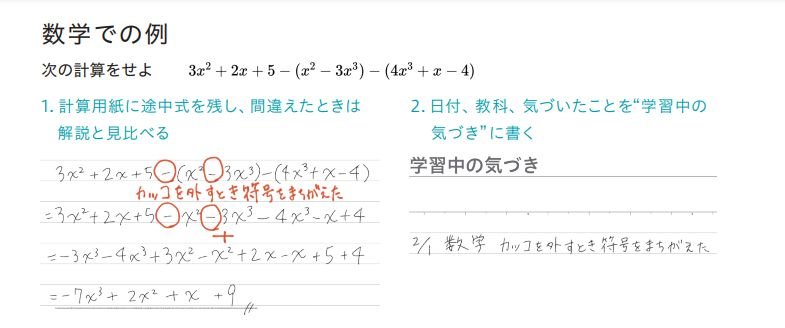 数学での例
次の計算をせよ 3x² + 2x + 5 − (x² − 3x³) − (4x³ + x − 4)
1. 計算用紙に途中式を残し、間違えたときは
解説と見比べる
3x² + 2x + 5 − (x² − 3x³) − (4x³ + x − 4)
カッコを外すとき符号をまちがえた
= 3x² + 2x + 5 − x² − 3x³ − 4x³ − x + 4
+
= −3x³ − 4x³ + 3x² − x² + 2x − x + 5 + 4
= −7x³ + 2x² + x + 9
2. 日付、教科、気づいたことを“学習中の
気づき”に書く
学習中の気づき
2/1 数学 カッコを外すとき符号をまちがえた